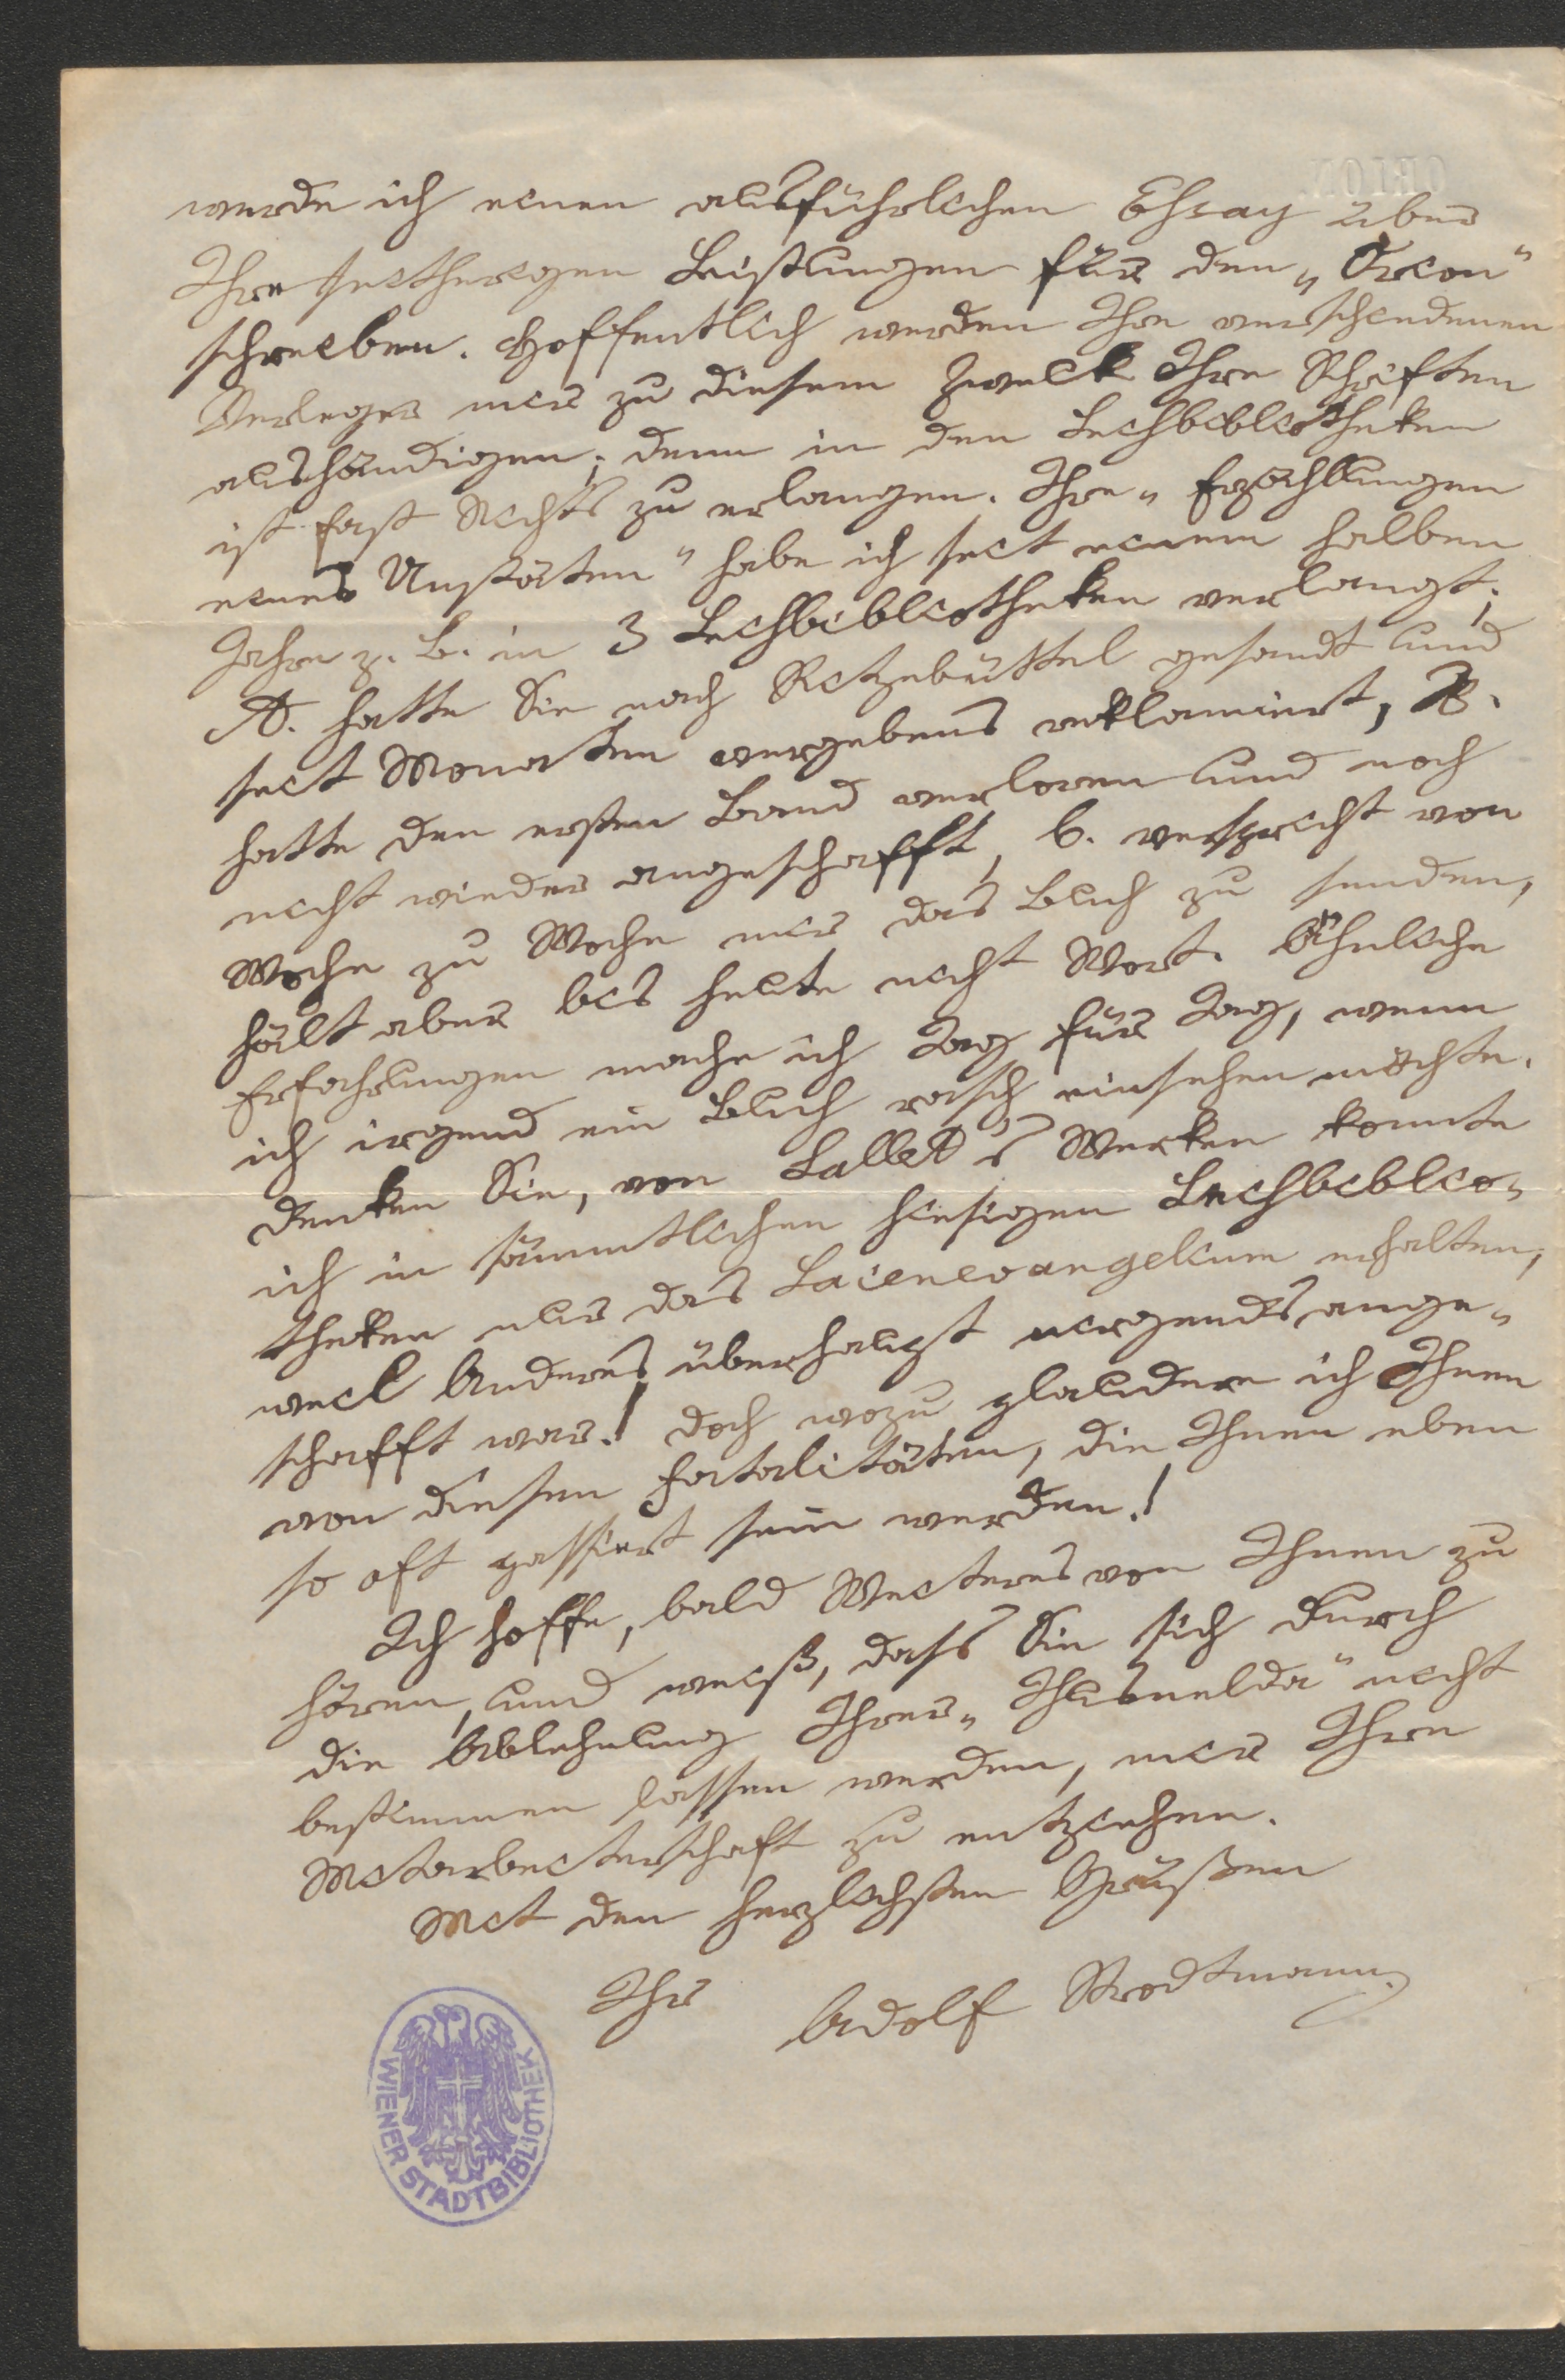 ORION.
werde ich einen ausführlichen Essay über
Ihre seitherigen Leistungen für den „Orion“
schreiben. Hoffentlich werden Ihre verschiedenen
Verleger mir zu diesem Zweck Ihre Schriften
aushändigen; denn in den Leihbibliotheken
ist fast Nichts zu erlangen. Ihre „Erzählungen
eines Unstäten“ habe ich seit einem halben
Jahre z. B. in 3 Leihbibliotheken verlangt;
A. hatte Sie nach Ritzebüttel gesandt und
seit Monaten vergebens reklamiert, B.
hatte den ersten Band verloren und noch
nicht wieder angeschafft, C. verspricht von
Woche zu Woche mir das Buch zu senden,
hält aber bis heute nicht Wort. Ähnliche
Erfahrungen mache ich Tag für Tag, wenn
ich irgend ein Buch rasch einsehen möchte.
Denken Sie, von Sallet's Werken konnte
ich in sämmtlichen hiesigen Leihbiblio-
theken nur das Laienevangelium erhalten,
weil Anderes überhaupt nirgends ange-
schafft war! Doch wozu plaudere ich Ihnen
von diesen Fatalitäten, die Ihnen eben
so oft passiert sein werden!
Ich hoffe, bald Weiteres von Ihnen zu
hören, und weiß, dass Sie sich durch
die Ablehnung Ihrer „Thusnelda“ nicht
bestimmen lassen werden, mir Ihre
Mitarbeiterschaft zu entziehen.
Mit den herzlichsten Grüßen
Ihr Adolf Strodtmann.
WIENER STADTBIBLIOTHEK